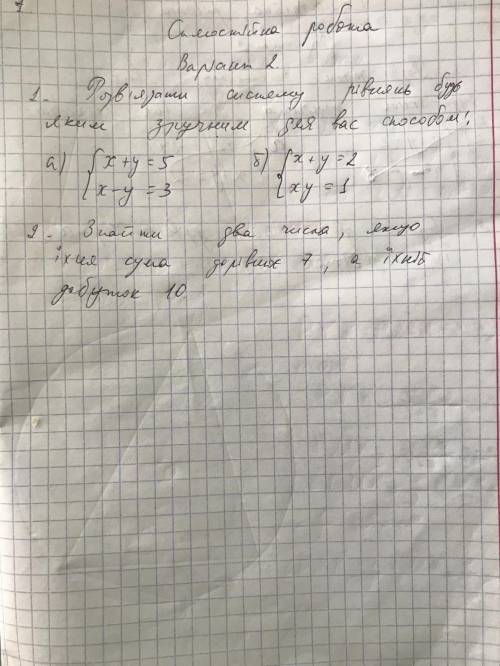 Самостійна робота
Варіант 2
1. Розв'язати систему рівнянь будь
яким зручним для вас способом:
а) { x+y=5 б) { x+y=2
x-y=3 xy=1
2. Знайти два числа, якщо
їхня сума дорівнює 7, а їхній
добуток 10